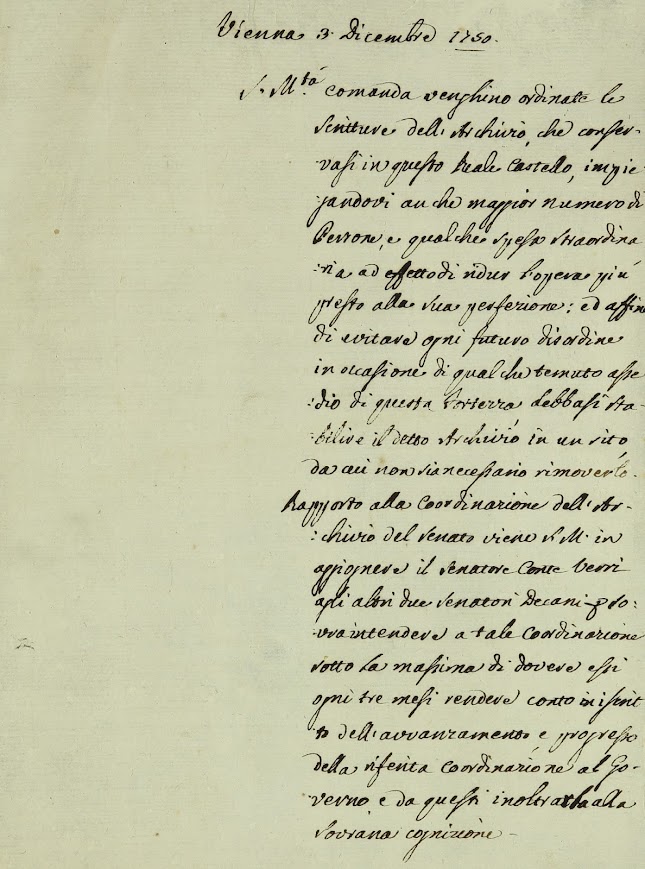 Vienna 3. Dicembre 1750.
S. M.tà comanda venghino ordinate le
scritture dell'Archivio, che conser-
vasi in questo Reale Castello, impie-
gandovi anche maggior numero di
Persone, e qualche spesa straordina
:ria ad effetto di ridur l'opera più
presto alla sua perfezione: ed affine
di evitare ogni futuro disordine
in occasione di qualche temuto asse
:dio di questa Fortezza debbasi sta-
:bilire il detto Archivio in un sito
da cui non sia necessario rimoverlo.
Rapporto alla Coordinazione dell'Ar-
:chivio del Senato viene S. M. in
aggignere il Senatore Conte Verri
agli altri due Senatori Decani p so:
vraintendere a tale Coordinazione
sotto la massima di dovere essi
ogni tre mesi rendere conto in iscrit
to dell'avvanzamento e progresso
della riferita Coordinazione al Go-
verno e da questi inoltrarla alla
Sovrana cognizione -